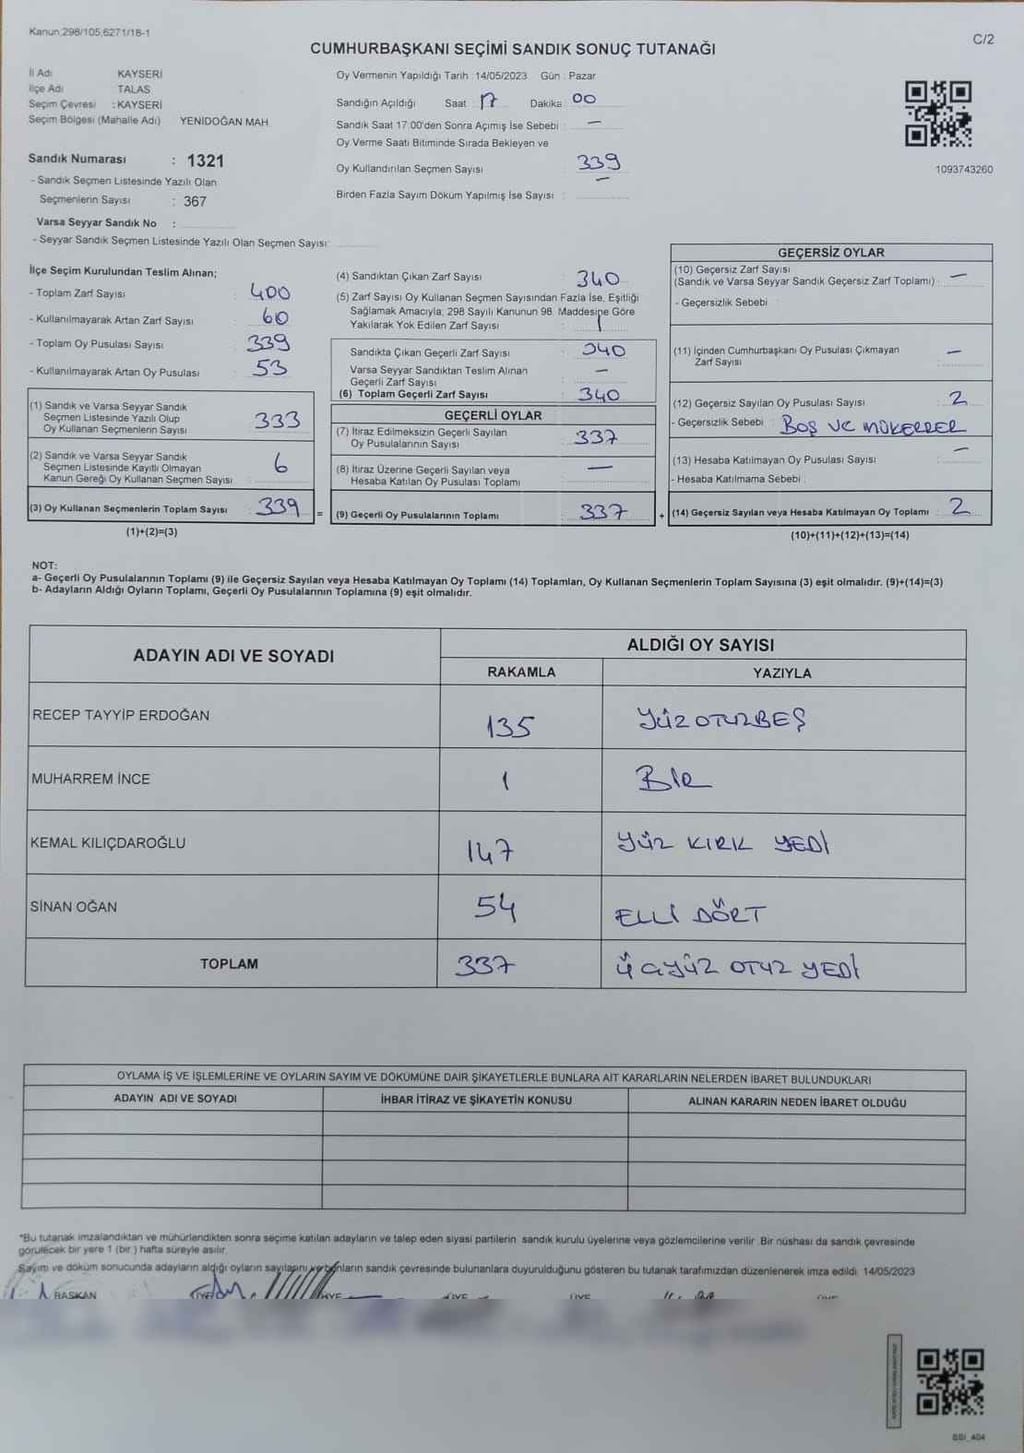 Kanun;298/105,6271/18-1
C/2
CUMHURBAŞKANI SEÇİMİ SANDIK SONUÇ TUTANAĞI
İl Adı KAYSERİ
İlçe Adı TALAS
Seçim Çevresi : KAYSERİ
Seçim Bölgesi (Mahalle Adı) YENİDOĞAN MAH.
Oy Vermenin Yapıldığı Tarih : 14/05/2023 Gün : Pazar
Sandığın Açıldığı Saat 17 Dakika 00
Sandık Saat 17:00'den Sonra Açımış İse Sebebi : —
Oy Verme Saati Bitiminde Sırada Bekleyen ve
Oy Kullandırılan Seçmen Sayısı 339
Birden Fazla Sayım Döküm Yapılmış İse Sayısı : —
1093743260
Sandık Numarası : 1321
- Sandık Seçmen Listesinde Yazılı Olan
Seçmenlerin Sayısı : 367
Varsa Seyyar Sandık No :
- Seyyar Sandık Seçmen Listesinde Yazılı Olan Seçmen Sayısı:
İlçe Seçim Kurulundan Teslim Alınan;
- Toplam Zarf Sayısı : 400
- Kullanılmayarak Artan Zarf Sayısı : 60
- Toplam Oy Pusulası Sayısı : 339
- Kullanılmayarak Artan Oy Pusulası : 53
(1) Sandık ve Varsa Seyyar Sandık
Seçmen Listesinde Yazılı Olup
Oy Kullanan Seçmenlerin Sayısı 333
(2) Sandık ve Varsa Seyyar Sandık
Seçmen Listesinde Kayıtlı Olmayan
Kanun Gereği Oy Kullanan Seçmen Sayısı 6
(3) Oy Kullanan Seçmenlerin Toplam Sayısı 339
(1)+(2)=(3)
(4) Sandıktan Çıkan Zarf Sayısı : 340
(5) Zarf Sayısı Oy Kullanan Seçmen Sayısından Fazla İse, Eşitliği
Sağlamak Amacıyla; 298 Sayılı Kanunun 98. Maddesine Göre
Yakılarak Yok Edilen Zarf Sayısı : 1
Sandıkta Çıkan Geçerli Zarf Sayısı : 340
Varsa Seyyar Sandıktan Teslim Alınan
Geçerli Zarf Sayısı : —
(6) Toplam Geçerli Zarf Sayısı : 340
GEÇERLİ OYLAR
(7) İtiraz Edilmeksizin Geçerli Sayılan
Oy Pusulalarının Sayısı : 337
(8) İtiraz Üzerine Geçerli Sayılan veya
Hesaba Katılan Oy Pusulası Toplamı : —
= (9) Geçerli Oy Pusulalarının Toplamı : 337
GEÇERSİZ OYLAR
(10) Geçersiz Zarf Sayısı
(Sandık ve Varsa Seyyar Sandık Geçersiz Zarf Toplamı) : —
- Geçersizlik Sebebi :
(11) İçinden Cumhurbaşkanı Oy Pusulası Çıkmayan
Zarf Sayısı : —
(12) Geçersiz Sayılan Oy Pusulası Sayısı : 2
- Geçersizlik Sebebi : BOŞ VE MÜKERRER
(13) Hesaba Katılmayan Oy Pusulası Sayısı : —
- Hesaba Katılmama Sebebi :
+ (14) Geçersiz Sayılan veya Hesaba Katılmayan Oy Toplamı : 2
(10)+(11)+(12)+(13)=(14)
NOT:
a- Geçerli Oy Pusulalarının Toplamı (9) ile Geçersiz Sayılan veya Hesaba Katılmayan Oy Toplamı (14) Toplamları, Oy Kullanan Seçmenlerin Toplam Sayısına (3) eşit olmalıdır. (9)+(14)=(3)
b- Adayların Aldığı Oyların Toplamı, Geçerli Oy Pusulalarının Toplamına (9) eşit olmalıdır.
ADAYIN ADI VE SOYADI ALDIĞI OY SAYISI
RAKAMLA YAZIYLA
RECEP TAYYİP ERDOĞAN 135 YÜZ OTUZBEŞ
MUHARREM İNCE 1 BİR
KEMAL KILIÇDAROĞLU 147 YÜZ KIRK YEDİ
SİNAN OĞAN 54 ELLİ DÖRT
TOPLAM 337 ÜÇYÜZ OTUZ YEDİ
OYLAMA İŞ VE İŞLEMLERİNE VE OYLARIN SAYIM VE DÖKÜMÜNE DAİR ŞİKAYETLERLE BUNLARA AİT KARARLARIN NELERDEN İBARET BULUNDUKLARI
ADAYIN ADI VE SOYADI İHBAR İTİRAZ VE ŞİKAYETİN KONUSU ALINAN KARARIN NEDEN İBARET OLDUĞU
*Bu tutanak imzalandıktan ve mühürlendikten sonra seçime katılan adayların ve talep eden siyasi partilerin sandık kurulu üyelerine veya gözlemcilerine verilir. Bir nüshası da sandık çevresinde
görülecek bir yere 1 (bir ) hafta süreyle asılır.
Sayım ve döküm sonucunda adayların aldığı oyların sayılarını ve bunların sandık çevresinde bulunanlara duyurulduğunu gösteren bu tutanak tarafımızdan düzenlenerek imza edildi. 14/05/2023
BAŞKAN ÜYE ÜYE ÜYE ÜYE